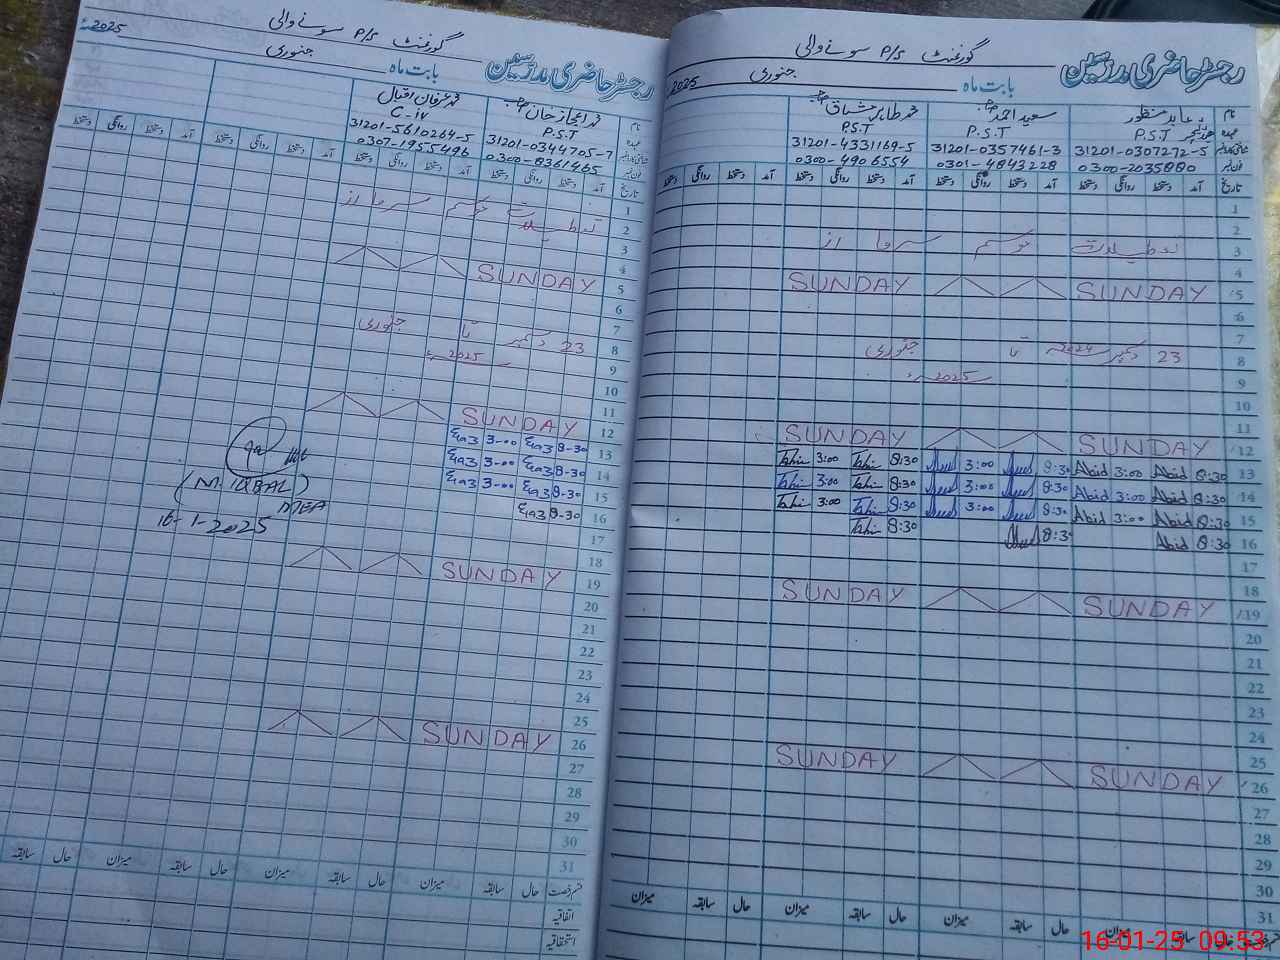 گورنمنٹ P/S سونے والی
رجسٹر حاضری مدرسین
بابت ماہ جنوری 2025
نام عابد منظور سعید احمد صاحب محمد طاہر مشتاق صاحب
عہدہ ہیڈ ٹیچر P.S.T P.S.T P.S.T
31201-0307272-5 31201-0357461-3 31201-4331169-5
فون نمبر 0300-2035880 0301-4843228 0300-4906554
تاریخ آمد دستخط روانگی دستخط آمد دستخط روانگی دستخط آمد دستخط روانگی دستخط آمد دستخط
1
2
3 تعطیلات موسم سرما از
4
5 SUNDAY SUNDAY
6
7
8 23 دسمبر 2024ء تا جنوری
9 2025ء
10
11
12 SUNDAY SUNDAY
13 8:30 Abid 3:00 Abid 8:30 3:00 8:30 Tahir 3:00 Tahir
14 8:30 Abid 3:00 Abid 8:30 3:00 8:30 Tahir 3:00 Tahir
15 8:30 Abid 3:00 Abid 8:30 3:00 8:30 Tahir 3:00 Tahir
16 8:30 Abid 8:30 8:30 Tahir
17
18
19 SUNDAY SUNDAY
20
21
22
23
24
25
26 SUNDAY SUNDAY
27
28
29
30
31
حال سابقہ میزان حال سابقہ میزان حال سابقہ میزان
گورنمنٹ P/S سونے والی
2025ء
رجسٹر حاضری مدرسین
بابت ماہ جنوری
نام محمد اعجاز خان صاحب محمد عرفان اقبال
عہدہ P.S.T C-iv
31201-0344705-7 31201-5610264-5
فون نمبر 0300-8361465 0307-1955496
تاریخ آمد دستخط روانگی دستخط آمد دستخط روانگی دستخط آمد دستخط روانگی دستخط آمد دستخط روانگی دستخط
1
2 تعطیلات موسم سرما از
3
4
5 SUNDAY
6
7
8 23 دسمبر تا جنوری
9 2025ء
10
11
12 SUNDAY
13 8-30 3-00
14 8-30 3-00
15 8-30 3-00
16 8-30
17
18
19 SUNDAY
20
21
22
23
24
25
26 SUNDAY
27
28
29
30
31
قسم رخصت حال سابقہ میزان حال سابقہ میزان حال سابقہ میزان حال سابقہ
اتفاقیہ
استحقاقیہ
(M. IQBAL)
MEA
16-1-2025
16-01-25 09:53